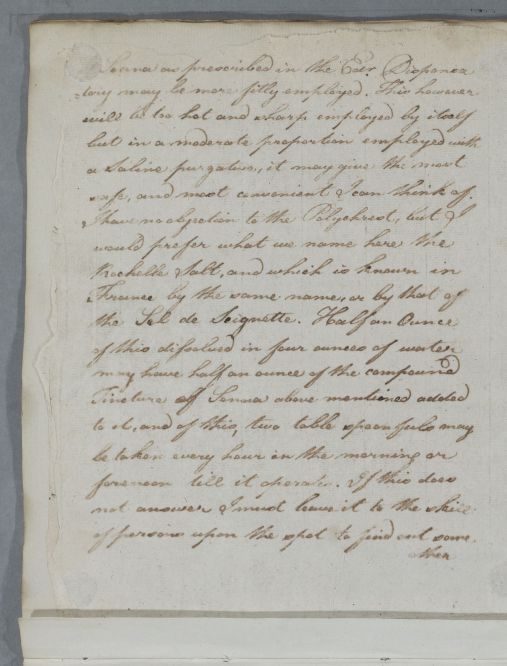 Senna as prescribed in the Edr. Dispensa
tory may be more fitly employed. This however
will be too hot and sharp employed by itself
but in a moderate proportion employed with
a Saline purgative, it may give the most
safe, and most convenient I can think of.
I have no objection to the Polychrest, but I
would prefer what we name here the
Rochelle Salt, and which is known in
France by the same name, or by that of
the Sel de Seignette. Half an Ounce
of this dissolved in four ounces of water
may have half an ounce of the compound
Tincture of Senna above mentioned added
to it, and of this, two table spoonfuls may
be taken every hour in the morning or
forenoon till it operates. If this does
not answer I must leave it to the skill
of persons upon the spot to find out some
other